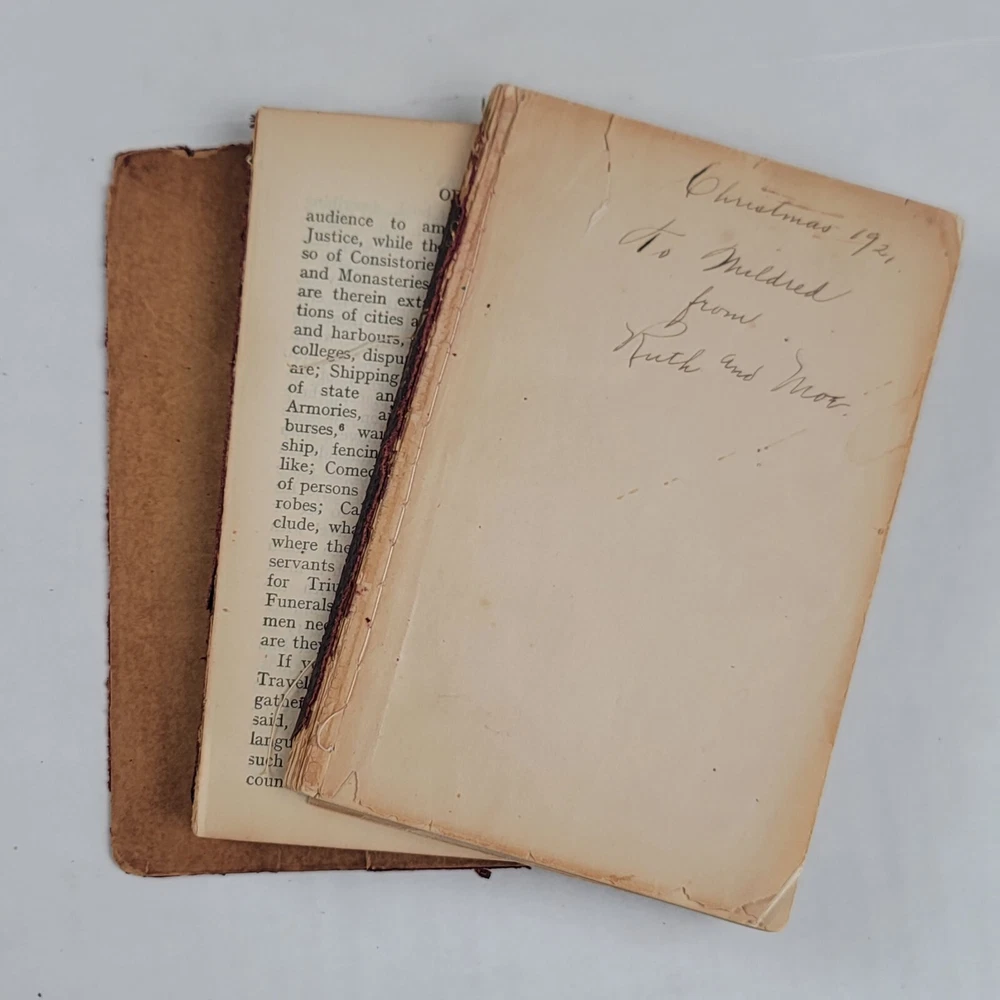 OF
audience to am
Justice, while th
so of Consistorie
and Monasteries
are therein ext
tions of cities a
and harbours,
colleges, dispu
are; Shipping
of state an
Armories, a
burses,⁶ wa
ship, fencin
like; Comed
of persons
robes; Ca
clude, wha
where the
servants
for Triu
Funerals
men nee
are they
If yo
Travel
gather
said,
langu
such
coun
Christmas 192,
To Mildred
from
Ruth and Moe.